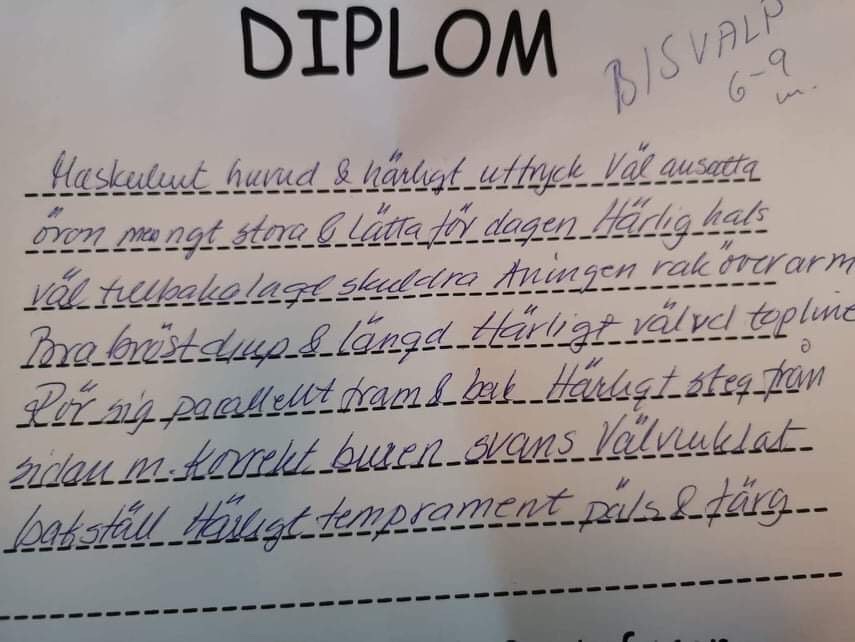 DIPLOM
BISVALP
6-9
m.
Maskulint huvud & härligt uttryck Väl ansatta
öron mängt stora & lätta för dagen Härlig hals
väl tillbakalagd skuldra Aningen rak överarm
Bra bröstdjup & längd Härligt välvd topline
Rör sig parallellt fram & bak Härligt steg från
sidan m. korrekt buren svans Välvinklat
bakställ Härligt temprament päls & färg